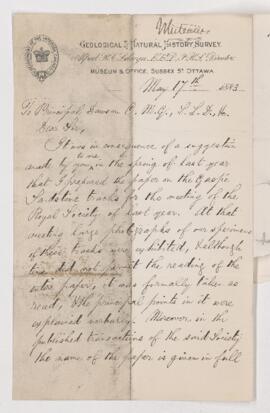 Whiteaves
GEOLOGICAL & NATURAL HISTORY SURVEY.
Alfred R. C. Selwyn, LL.D., F.R.S., Director
MUSEUM & OFFICE, SUSSEX ST OTTAWA
May 17th 1883
To Principal Dawson C. M. G., L. L. D., &c.
Dear Sir,
It was in consequence of a suggestion
made by you to me in the spring of last year
that I prepared the paper on the Gaspé
Sandstone tracks for the meeting of the
Royal Society of last year. At that
meeting large photographs of our specimens
of these tracks were exhibited, & although
time did not permit the reading of the
entire paper, it was formally taken as
read, & the principal points in it were
explained verbally. Moreover, in the
published transactions of the said Society
the name of the paper is given in full